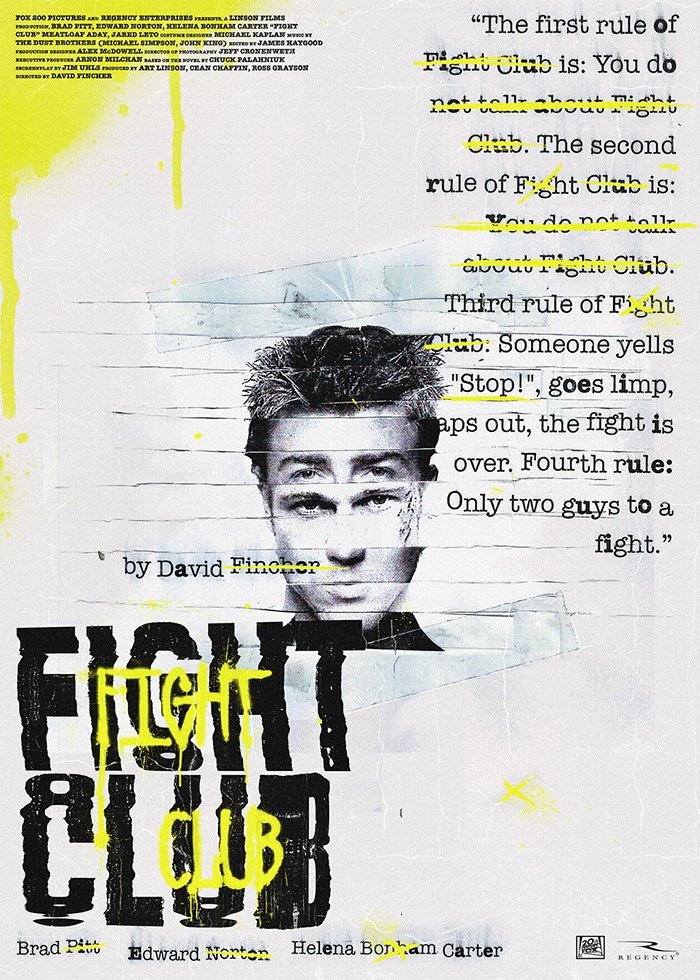 FOX 200 PICTURES AND REGENCY ENTERPRISES PRESENTS, A LINSON FILMS
PRODUCTION, BRAD PITT, EDWARD NORTON, HELENA BONHAM CARTER "FIGHT
CLUB" MEATLOAF ADAY, JARED LETO COSTUME DESIGNER MICHAEL KAPLAN MUSIC BY
THE DUST BROTHERS (MICHAEL SIMPSON, JOHN KING) EDITED BY JAMES HAYGOOD
PRODUCTION DESIGNER ALEX McDOWELL DIRECTOR OF PHOTOGRAPHY JEFF CRONENWETH
EXECUTIVE PRODUCER ARNON MILCHAN BASED ON THE NOVEL BY CHUCK PALAHNIUK
SCREENPLAY BY JIM UHLS PRODUCED BY ART LINSON, CEAN CHAFFIN, ROSS GRAYSON
DIRECTED BY DAVID FINCHER
“The first rule of
Fight Club is: You do
not talk about Fight
Club. The second
rule of Fight Club is:
You do not talk
about Fight Club.
Third rule of Fight
Club: Someone yells
"Stop!", goes limp,
aps out, the fight is
over. Fourth rule:
Only two guys to a
fight.”
by David Fincher
FIGHT
FIGHT
CLUB
CLUB
Brad Pitt Edward Norton Helena Bonham Carter
20th
FOX
REGENCY